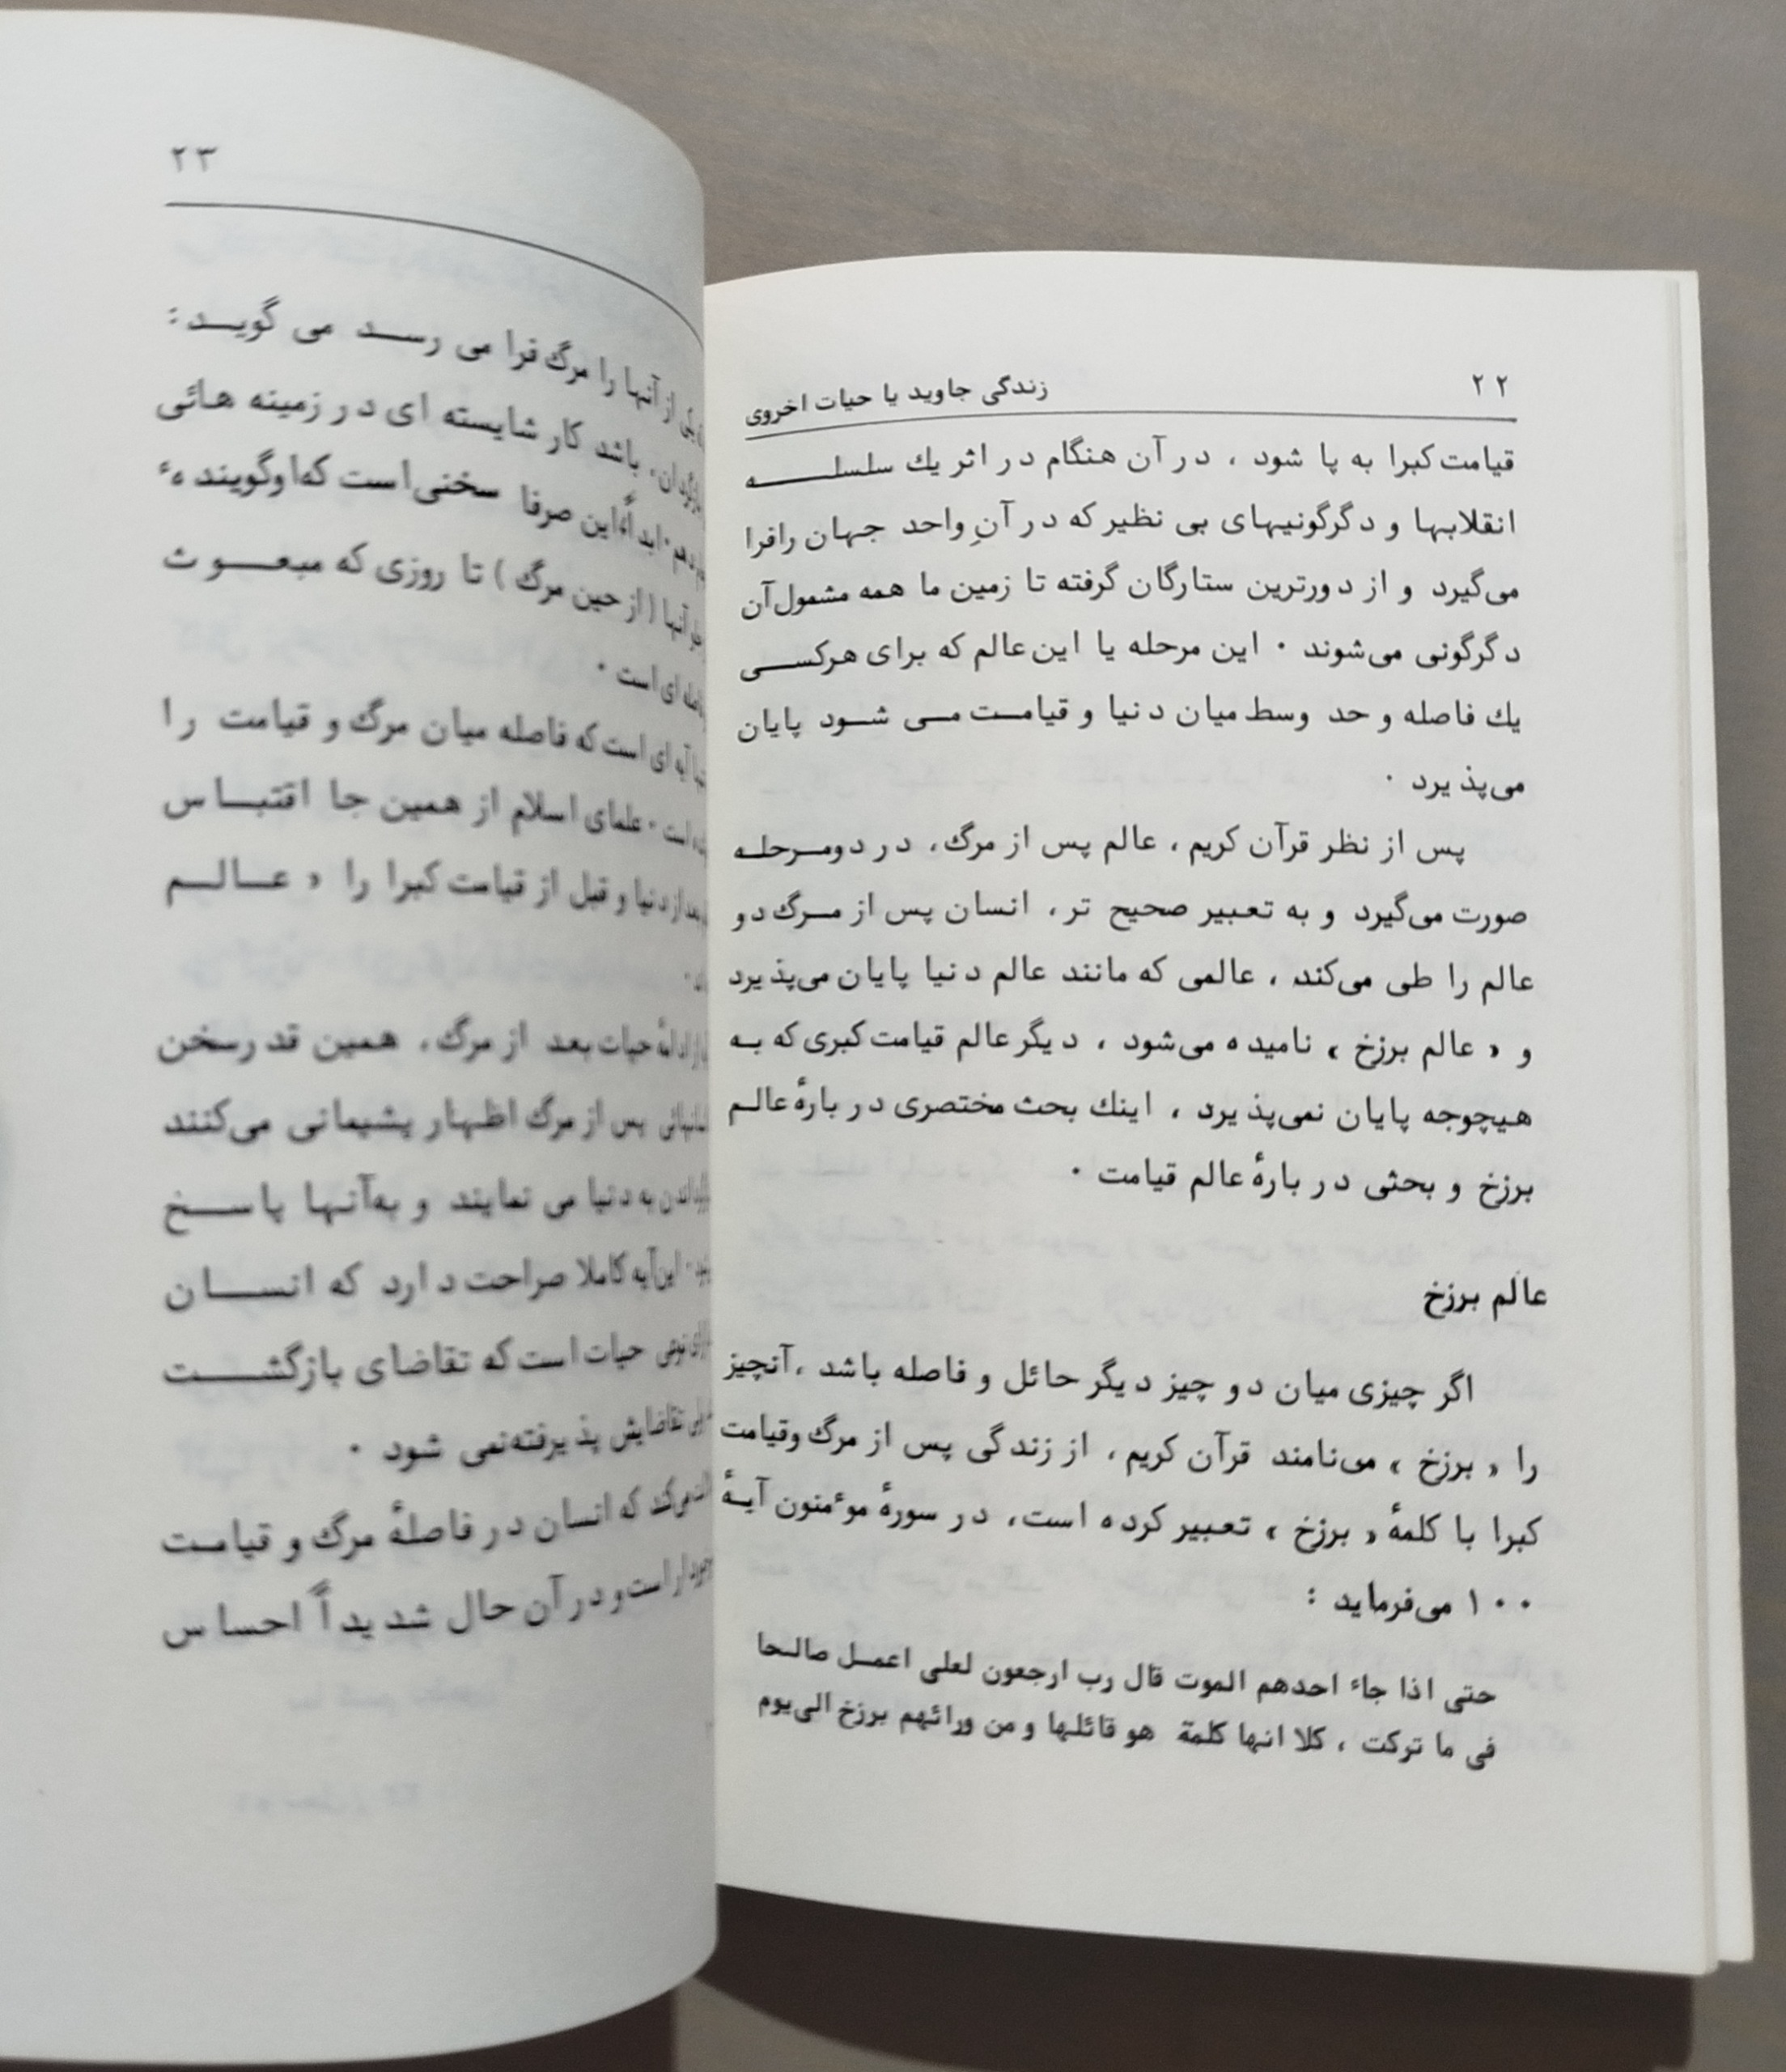 ۲۲
زندگی جاوید یا حیات اخروی
قیامت کبرا به پا شود ، در آن هنگام در اثر یك سلسلـــــه
انقلابها و دگرگونیهای بی نظیر که در آنِ واحد جهان رافرا
می‌گیرد و از دورترین ستارگان گرفته تا زمین ما همه مشمول‌آن
دگرگونی می‌شوند ٠ این مرحله یا این‌عالم که برای هرکســـی
یك فاصله و حد وسط میان دنیا و قیامــت مــی شــود پایان
می‌پذیرد ٠
پس از نظر قرآن کریم ، عالم پس از مرگ، در دومــرحلــه
صورت می‌گیرد و به تعبیر صحیح تر، انسان پس از مــرگ دو
عالم را طی می‌کند ، عالمی که مانند عالم دنیا پایان می‌پذیرد
و « عالم برزخ » نامیده می‌شود ، دیگر عالم قیامت کبری که بـه
هیچوجه پایان نمی‌پذیرد ، اینك بحث مختصری در بارهٔ عالـم
برزخ و بحثی در بارهٔ عالم قیامت ٠
عالم برزخ
اگر چیزی میان دو چیز دیگر حائل و فاصله باشد ، آنچیز
را « برزخ » می‌نامند قرآن کریم ، از زندگی پس از مرگ وقیامت
کبرا با کلمهٔ « برزخ » تعبیر کرده است، در سورهٔ موٴمنون آیـهٔ
۱۰۰ می‌فرماید :
حتی اذا جاء احدهم الموت قال رب ارجعون لعلی اعمــل صالـحا
فی ما ترکت ، کلا انها کلمة هو قائلها و من ورائهم برزخ الی‌یوم
۲۳
از آنها را مرگ فرا می رســد می گویــد :
باشد کار شایسته ای در زمینه هـائی
این صرفا سخنی‌است که‌اوگوینده ء
آنها ( از حین مرگ ) تا روزی که مبعـــوث
ای است ٠
آیه ای است که فاصله میان مرگ و قیامت را
علمای اسلام از همین جا اقتبــاس
دنیا و قبل از قیامت کبرا را « عــالــم
حیات بعد از مرگ، همین قدرسخن
پس از مرگ اظهار پشیمانی می‌کنند
به دنیا می نمایند و به‌آنـها پاســخ
این‌آیه کاملا صراحت دارد که انســـان
حیات است که تقاضای بازگشـــت
تقاضایش پذیرفته‌نمی شود ٠
که انسان در فاصلهٔ مرگ و قیامـت
است و در آن حال شدیداً احساس